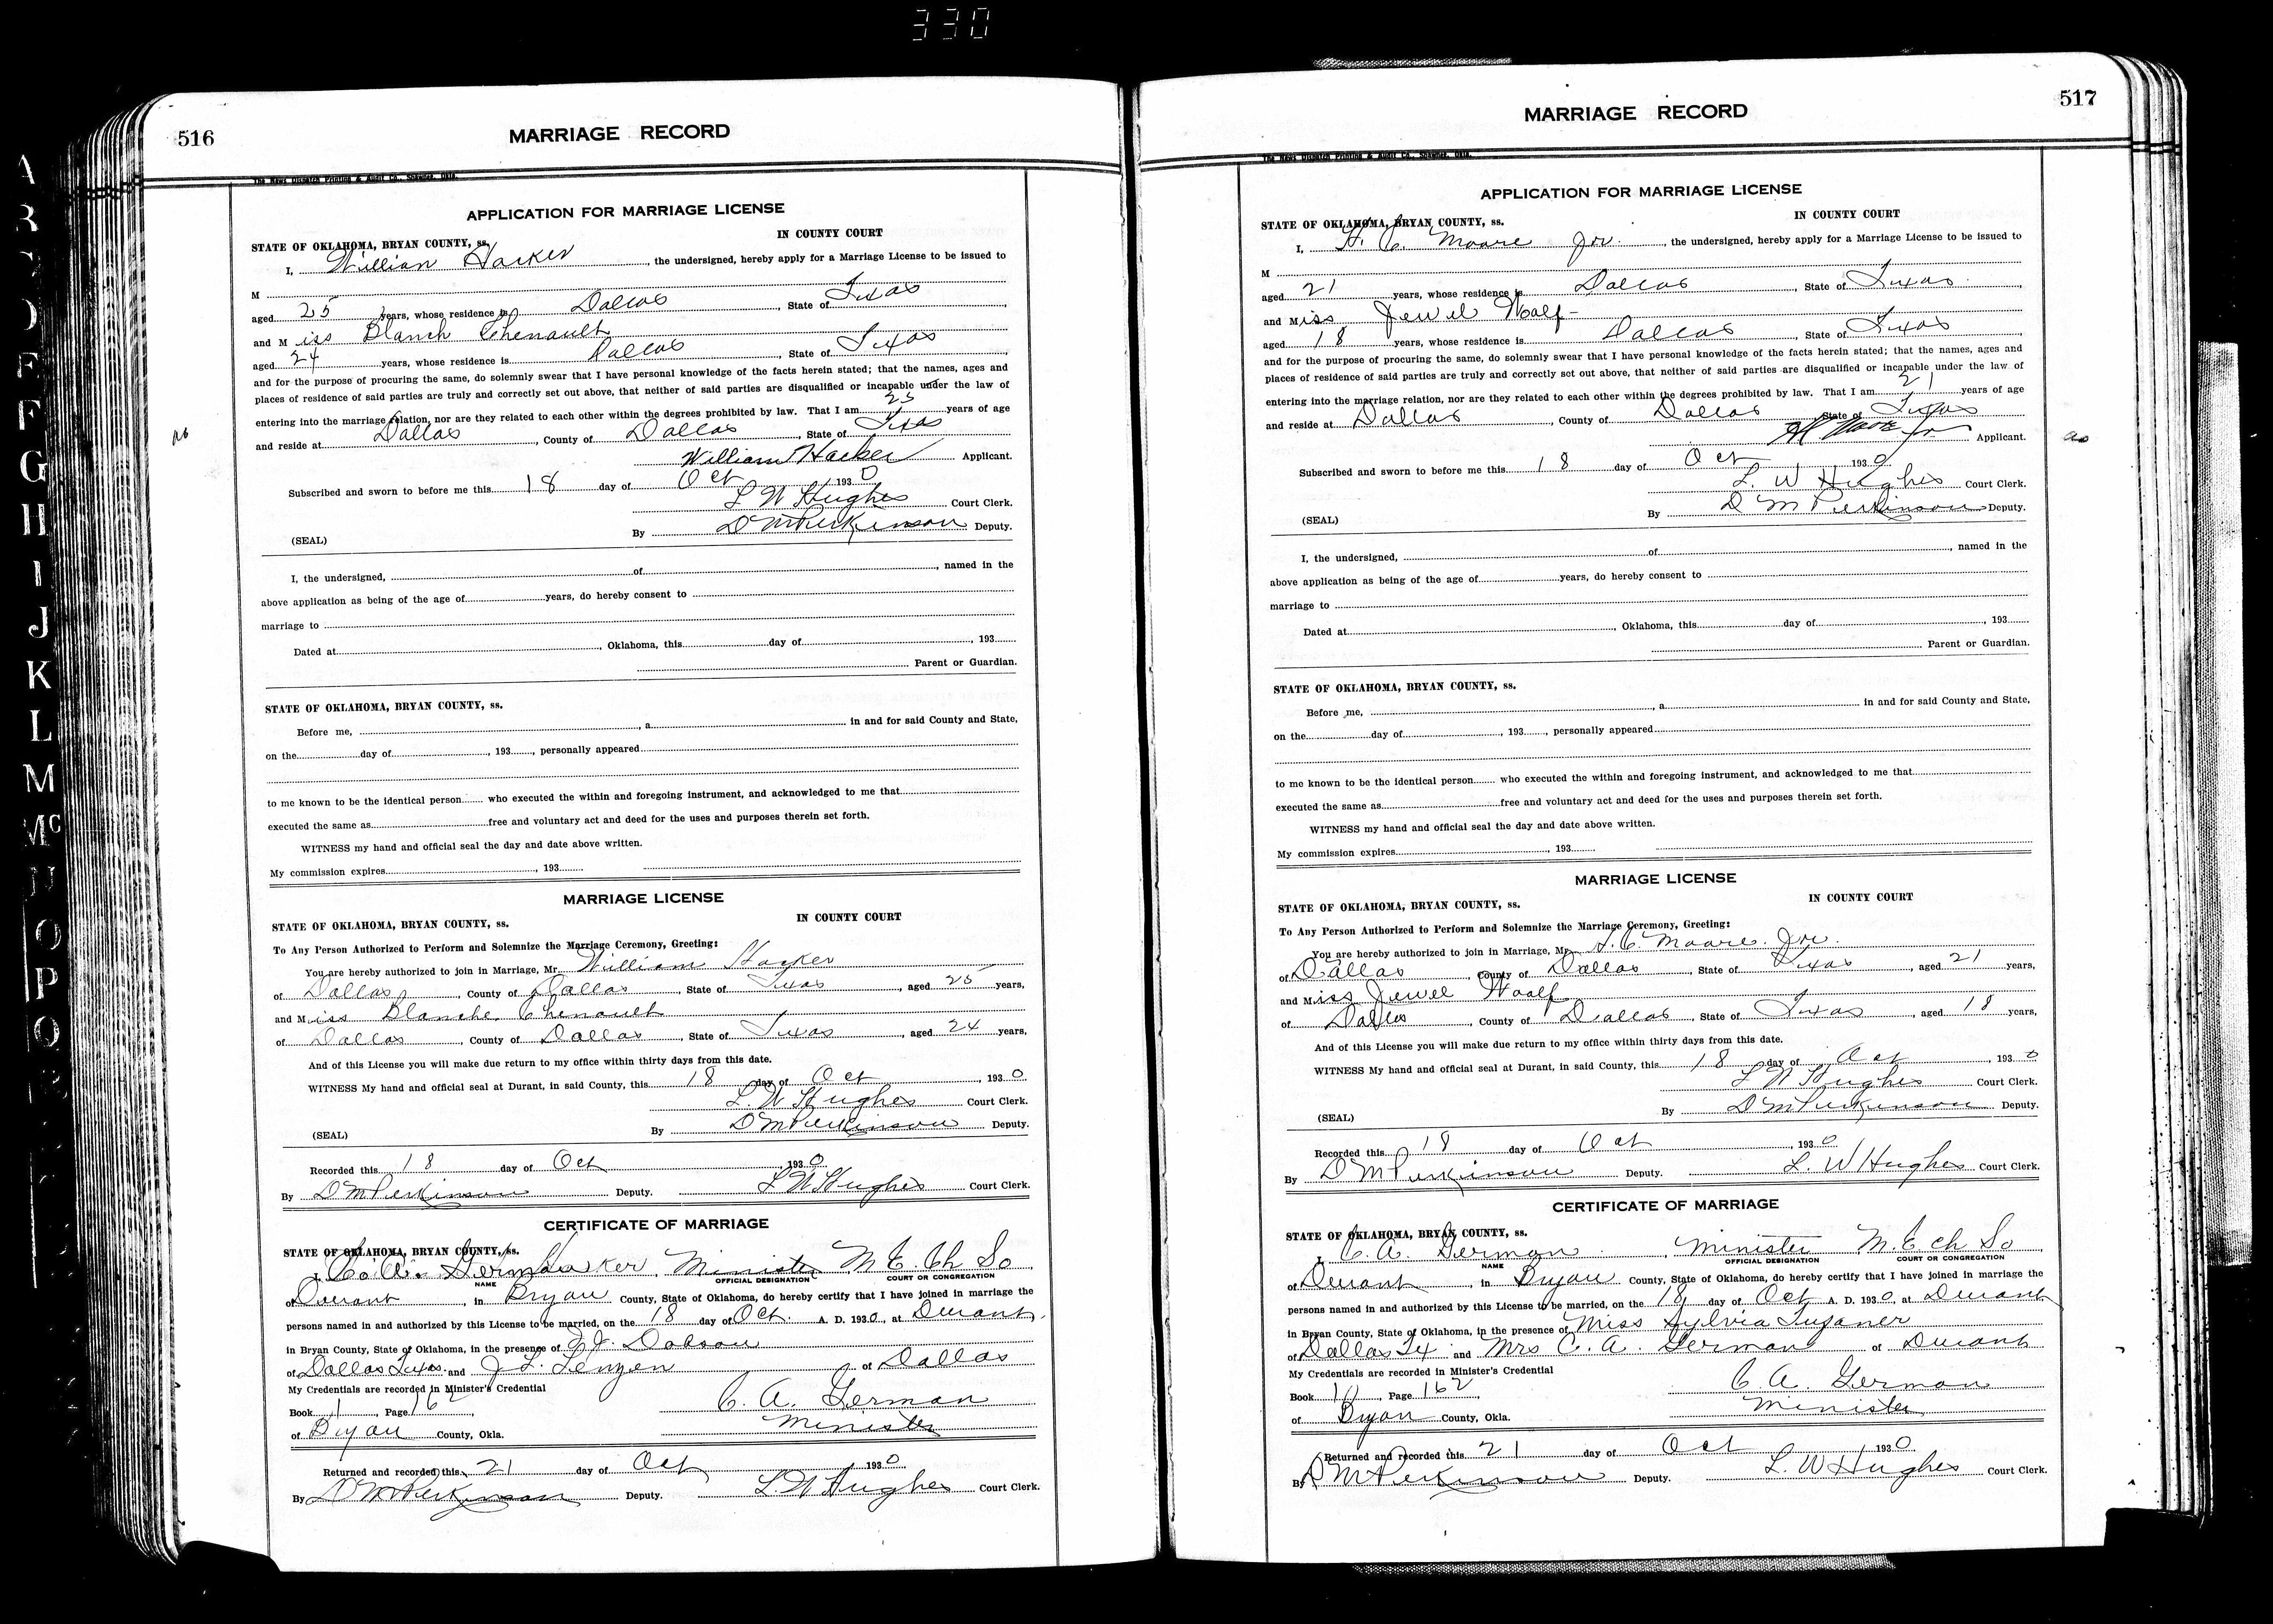 330
516
MARRIAGE RECORD
The News Dispatch Printing & Audit Co., Shawnee, Okla.
APPLICATION FOR MARRIAGE LICENSE
IN COUNTY COURT
STATE OF OKLAHOMA, BRYAN COUNTY, ss.
I, William Hacker, the undersigned, hereby apply for a Marriage License to be issued to
M
aged 25 years, whose residence is Dallas, State of Texas
and Miss Blanch Chenault
aged 24 years, whose residence is Dallas, State of Texas
and for the purpose of procuring the same, do solemnly swear that I have personal knowledge of the facts herein stated; that the names, ages and
places of residence of said parties are truly and correctly set out above, that neither of said parties are disqualified or incapable under the law of
entering into the marriage relation, nor are they related to each other within the degrees prohibited by law. That I am 25 years of age
and reside at Dallas, County of Dallas, State of Texas
William Hacker Applicant.
Subscribed and sworn to before me this 18 day of Oct 1930
L W Hughes Court Clerk.
(SEAL) By D M Perkinson Deputy.
I, the undersigned, of, named in the
above application as being of the age of years, do hereby consent to
marriage to
Dated at, Oklahoma, this day of, 193
Parent or Guardian.
STATE OF OKLAHOMA, BRYAN COUNTY, ss.
Before me, , a in and for said County and State,
on the day of, 193, personally appeared
to me known to be the identical person who executed the within and foregoing instrument, and acknowledged to me that
executed the same as free and voluntary act and deed for the uses and purposes therein set forth.
WITNESS my hand and official seal the day and date above written.
My commission expires, 193
MARRIAGE LICENSE
STATE OF OKLAHOMA, BRYAN COUNTY, ss. IN COUNTY COURT
To Any Person Authorized to Perform and Solemnize the Marriage Ceremony, Greeting:
You are hereby authorized to join in Marriage, Mr. William Hacker
of Dallas, County of Dallas, State of Texas, aged 25 years,
and Miss Blanche Chenault
of Dallas, County of Dallas, State of Texas, aged 24 years,
And of this License you will make due return to my office within thirty days from this date.
WITNESS My hand and official seal at Durant, in said County, this 18 day of Oct, 1930
L. W Hughes Court Clerk.
(SEAL) By D M Perkinson Deputy.
Recorded this 18 day of Oct, 1930
By D M Perkinson Deputy. L W Hughes Court Clerk.
CERTIFICATE OF MARRIAGE
STATE OF OKLAHOMA, BRYAN COUNTY, ss.
I, C. A. German, Minister M E Ch So
NAME OFFICIAL DESIGNATION COURT OR CONGREGATION
of Durant, in Bryan County, State of Oklahoma, do hereby certify that I have joined in marriage the
persons named in and authorized by this License to be married, on the 18 day of Oct. A. D. 1930, at Durant,
in Bryan County, State of Oklahoma, in the presence of J. J. Dobson
of Dallas Texas and J. L. Lenzen of Dallas
My Credentials are recorded in Minister's Credential
Book 1, Page 162, C. A. German
of Bryan County, Okla. Minister
Returned and recorded this 21 day of Oct 1930
By D M Perkinson Deputy. L W Hughes Court Clerk.
517
MARRIAGE RECORD
The News Dispatch Printing & Audit Co., Shawnee, Okla.
APPLICATION FOR MARRIAGE LICENSE
IN COUNTY COURT
STATE OF OKLAHOMA, BRYAN COUNTY, ss.
I, H. C. Moore Jr., the undersigned, hereby apply for a Marriage License to be issued to
M
aged 21 years, whose residence is Dallas, State of Texas
and Miss Jewel Woolf
aged 18 years, whose residence is Dallas, State of Texas
and for the purpose of procuring the same, do solemnly swear that I have personal knowledge of the facts herein stated; that the names, ages and
places of residence of said parties are truly and correctly set out above, that neither of said parties are disqualified or incapable under the law of
entering into the marriage relation, nor are they related to each other within the degrees prohibited by law. That I am 21 years of age
and reside at Dallas, County of Dallas State of Texas
Applicant.
Subscribed and sworn to before me this 18 day of Oct 1930
L. W Hughes Court Clerk.
(SEAL) By D M Perkinson Deputy.
I, the undersigned, of, named in the
above application as being of the age of years, do hereby consent to
marriage to
Dated at, Oklahoma, this day of, 193
Parent or Guardian.
STATE OF OKLAHOMA, BRYAN COUNTY, ss.
Before me, , a in and for said County and State,
on the day of, 193, personally appeared
to me known to be the identical person who executed the within and foregoing instrument, and acknowledged to me that
executed the same as free and voluntary act and deed for the uses and purposes therein set forth.
WITNESS my hand and official seal the day and date above written.
My commission expires, 193
MARRIAGE LICENSE
STATE OF OKLAHOMA, BRYAN COUNTY, ss. IN COUNTY COURT
To Any Person Authorized to Perform and Solemnize the Marriage Ceremony, Greeting:
You are hereby authorized to join in Marriage, Mr. H. C. Moore Jr.
of Dallas, County of Dallas, State of Texas, aged 21 years,
and Miss Jewel Woolf
of Dallas, County of Dallas, State of Texas, aged 18 years,
And of this License you will make due return to my office within thirty days from this date.
WITNESS My hand and official seal at Durant, in said County, this 18 day of Oct, 1930
L W Hughes Court Clerk.
(SEAL) By D M Perkinson Deputy.
Recorded this 18 day of Oct, 1930
By D M Perkinson Deputy. L. W Hughes Court Clerk.
CERTIFICATE OF MARRIAGE
STATE OF OKLAHOMA, BRYAN COUNTY, ss.
I, C. A. German, Minister M. E Ch So
NAME OFFICIAL DESIGNATION COURT OR CONGREGATION
of Durant, in Bryan County, State of Oklahoma, do hereby certify that I have joined in marriage the
persons named in and authorized by this License to be married, on the 18 day of Oct A. D. 1930, at Durant
in Bryan County, State of Oklahoma, in the presence of Miss Sylvia
of Dallas Tx and Mrs C. A. German of Durant
My Credentials are recorded in Minister's Credential
Book, Page 162, C. A. German
of Bryan County, Okla. Minister
Returned and recorded this 21 day of Oct 1930
By D M Perkinson Deputy. L. W Hughes Court Clerk.